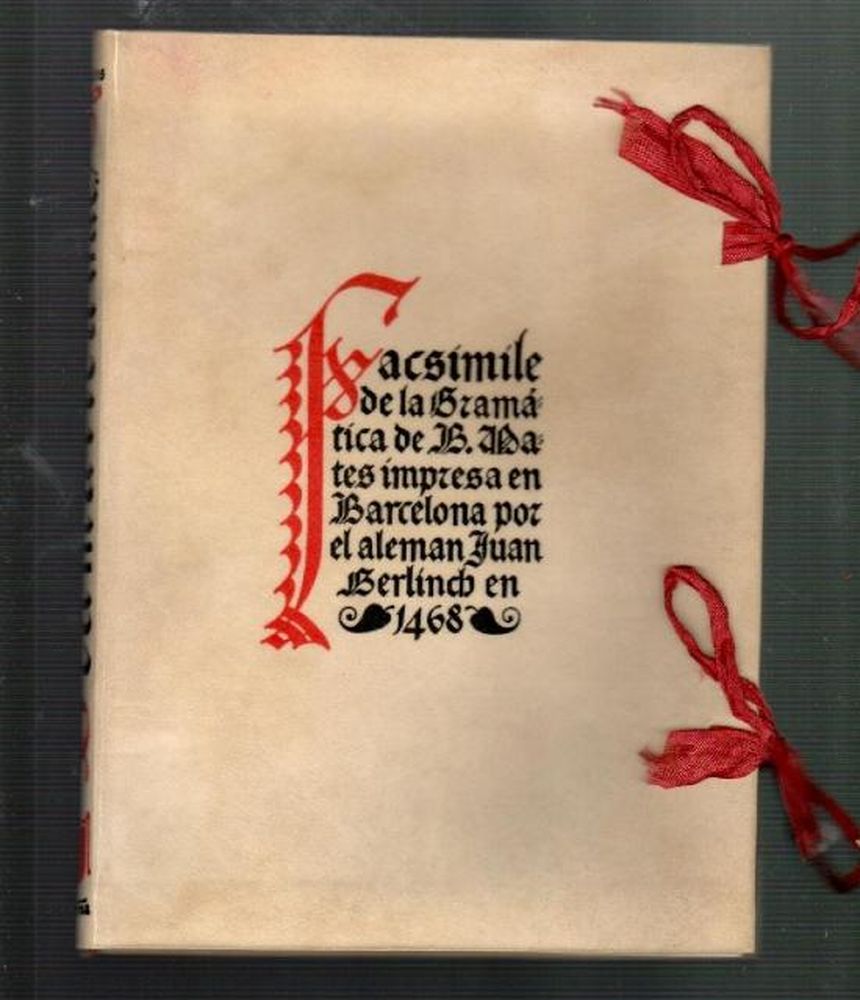 Facsimile
de la Gramá-
tica de B. Ma-
tes impresa en
Barcelona por
el aleman Juan
Gerlinch en
1468